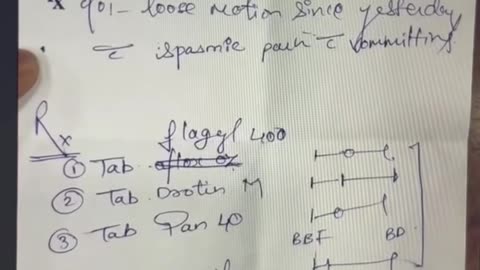 x g/o/- loose motion since yesterday
c̄ ispasmic pain c̄ vommitting.
Rx
flagyl 400
① Tab.
② Tab. Drotin M
③ Tab Pan 40
BBF BD